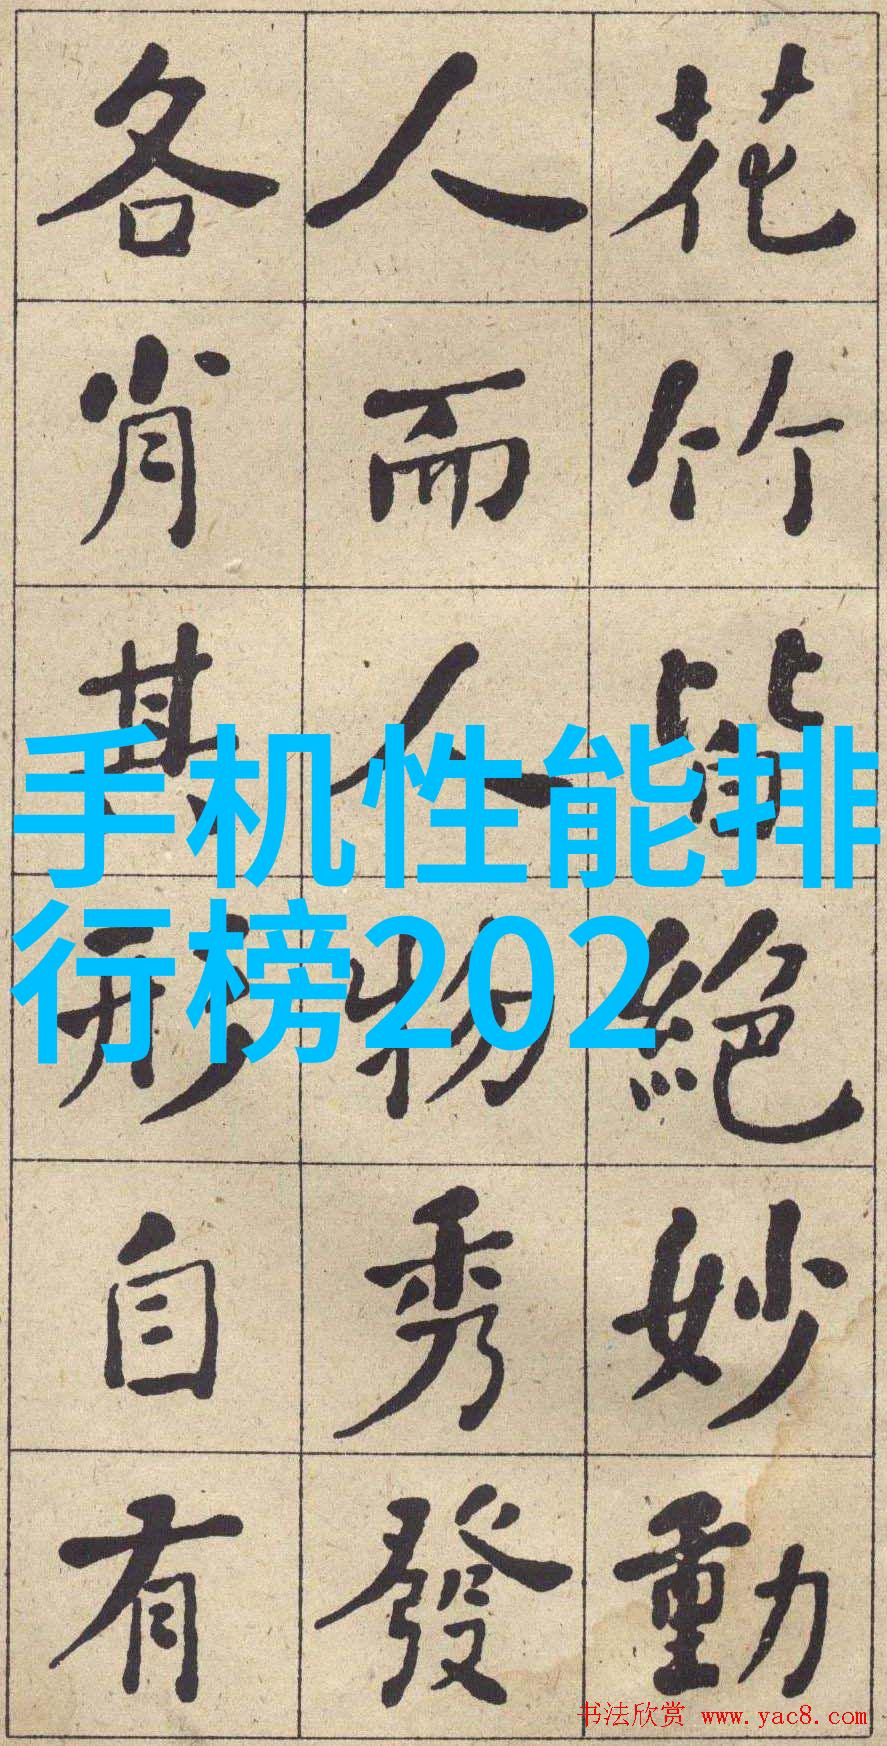 花竹皆絶妙動
人而人物秀發
各肖其形自有
手机性能排
行榜202
书法欣赏 www.yac8.com